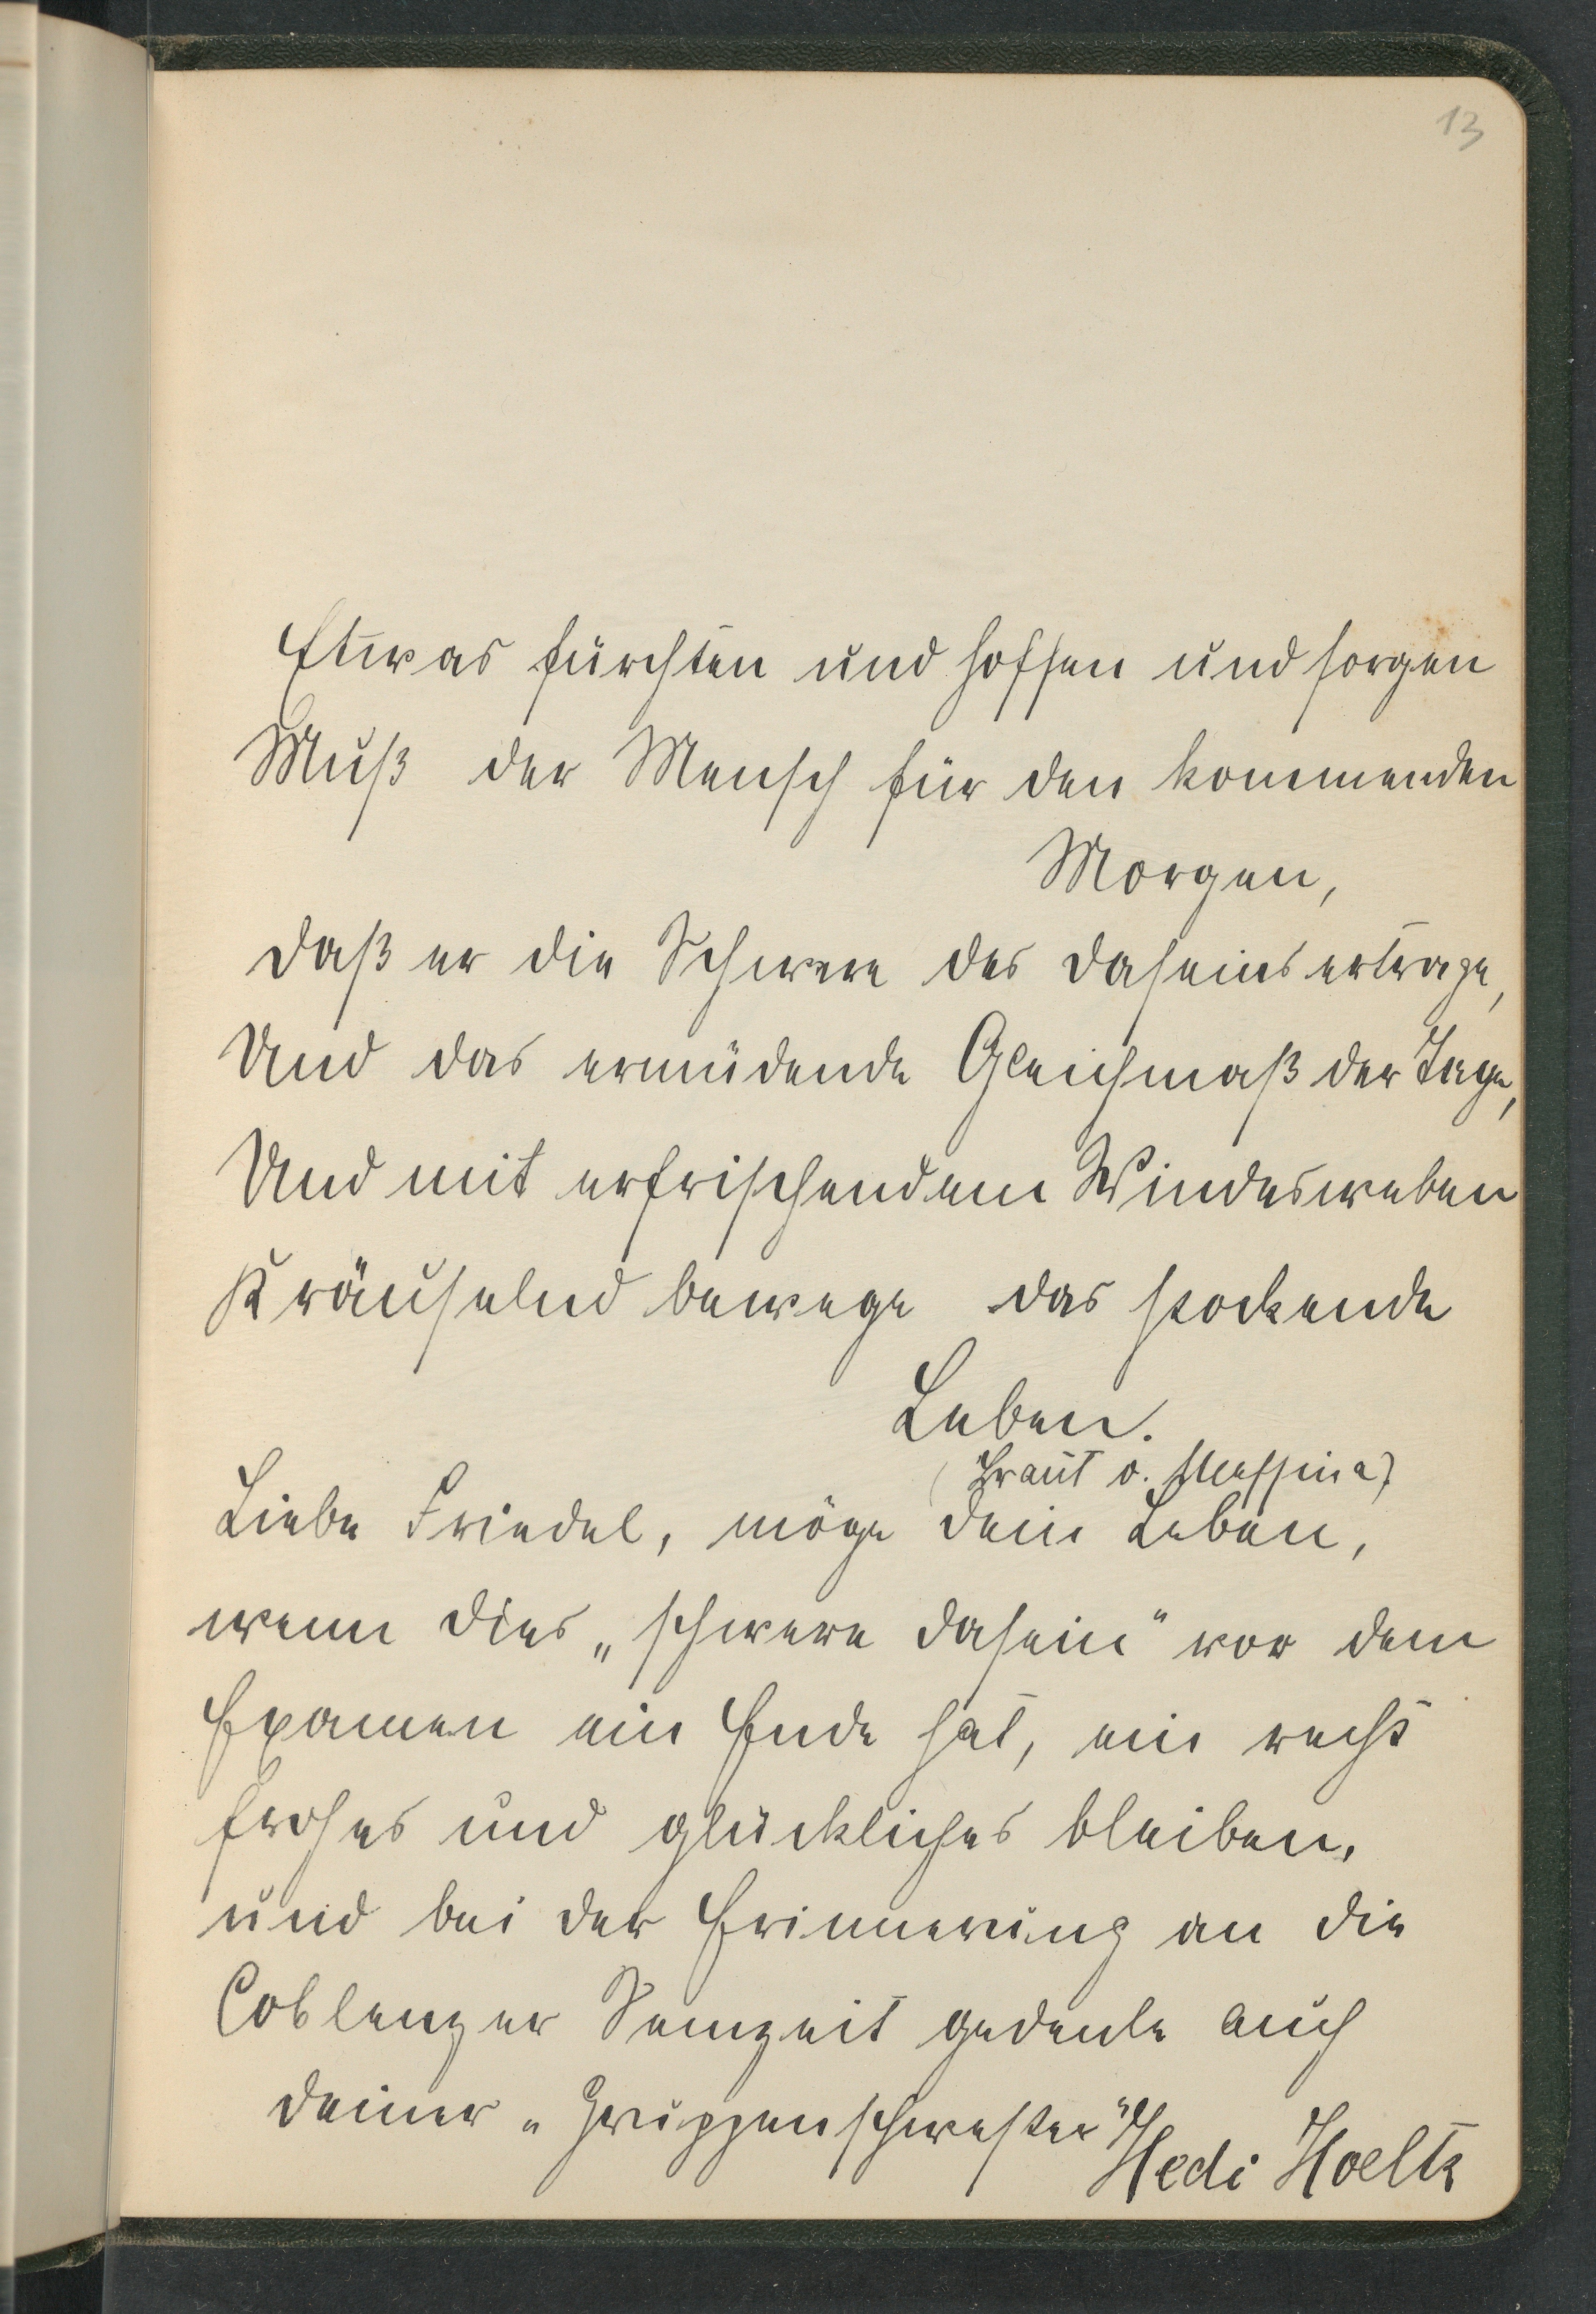 13
Etwas fürchten und hoffen und sorgen
Muß der Mensch für den kommenden
Morgen,
Daß er die Schwere des Daseins ertrage,
Und das ermüdende Gleichmaß der Tage,
Und mit erfrischendem Windesweben
Kräuselnd bewege das stockende
Leben.
(Braut v. Messina)
Liebe Friedel, möge Dein Leben,
wenn dies „schwere Dasein" vor dem
Examen ein Ende hat, ein recht
frohes und glückliches bleiben,
und bei der Erinnerung an die
Coblenzer Semzeit gedenke auch
Deiner „Gruppenschwester"
Hedi Hoeltz